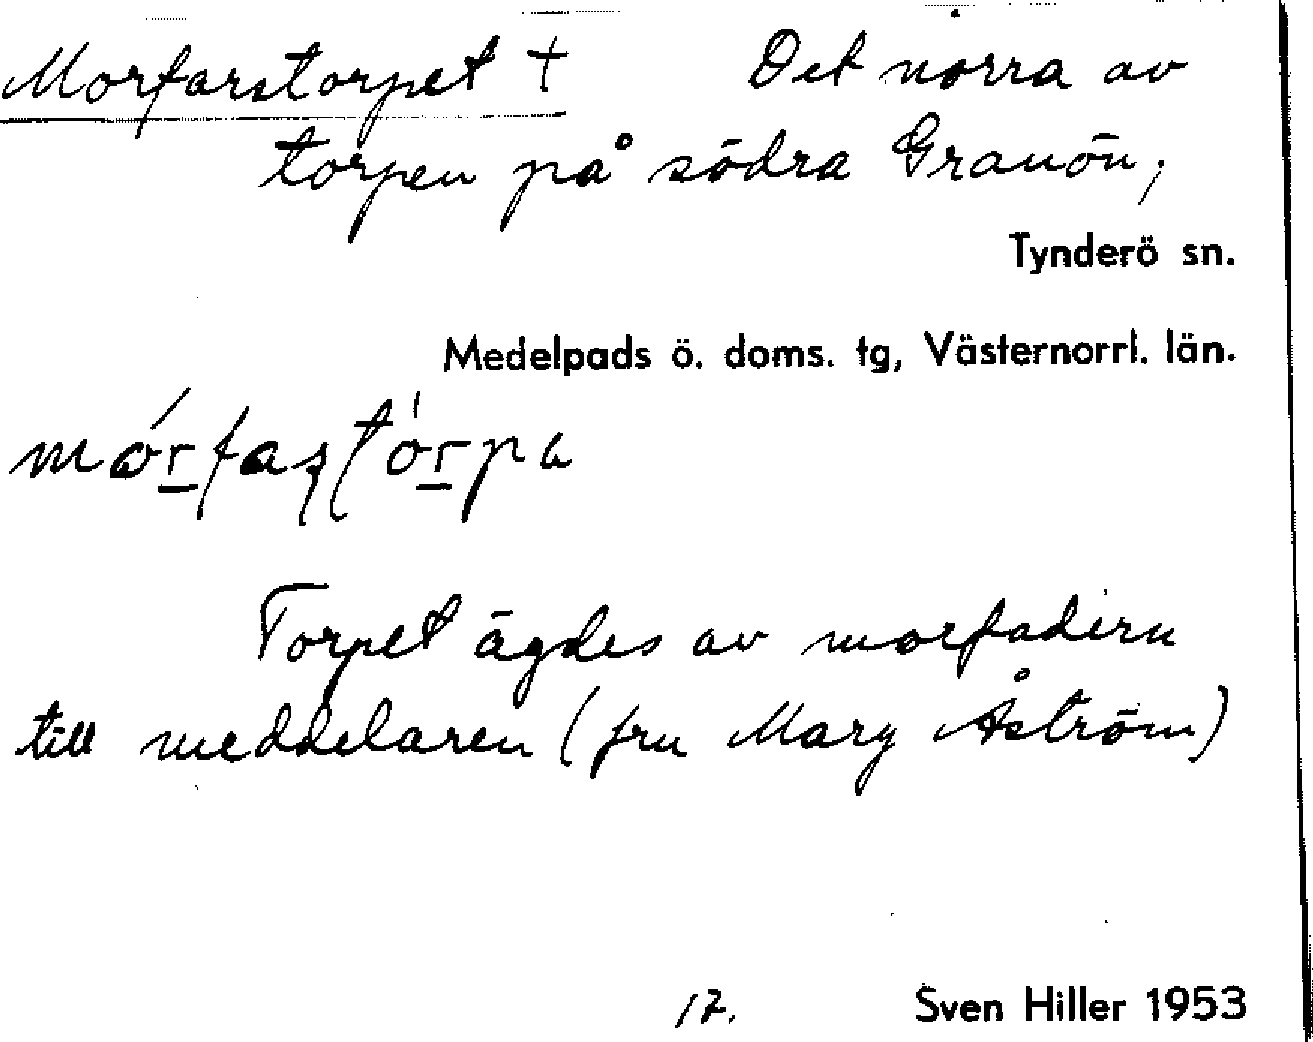 Morfarstorpet † Det norra av
torpen på södra Granön,
Tynderö sn.
Medelpads ö. doms. tg, Västernorrl. län.
Torpet ägdes av morfadern
till meddelaren (fru Mary Åström)
17. Sven Hiller 1953